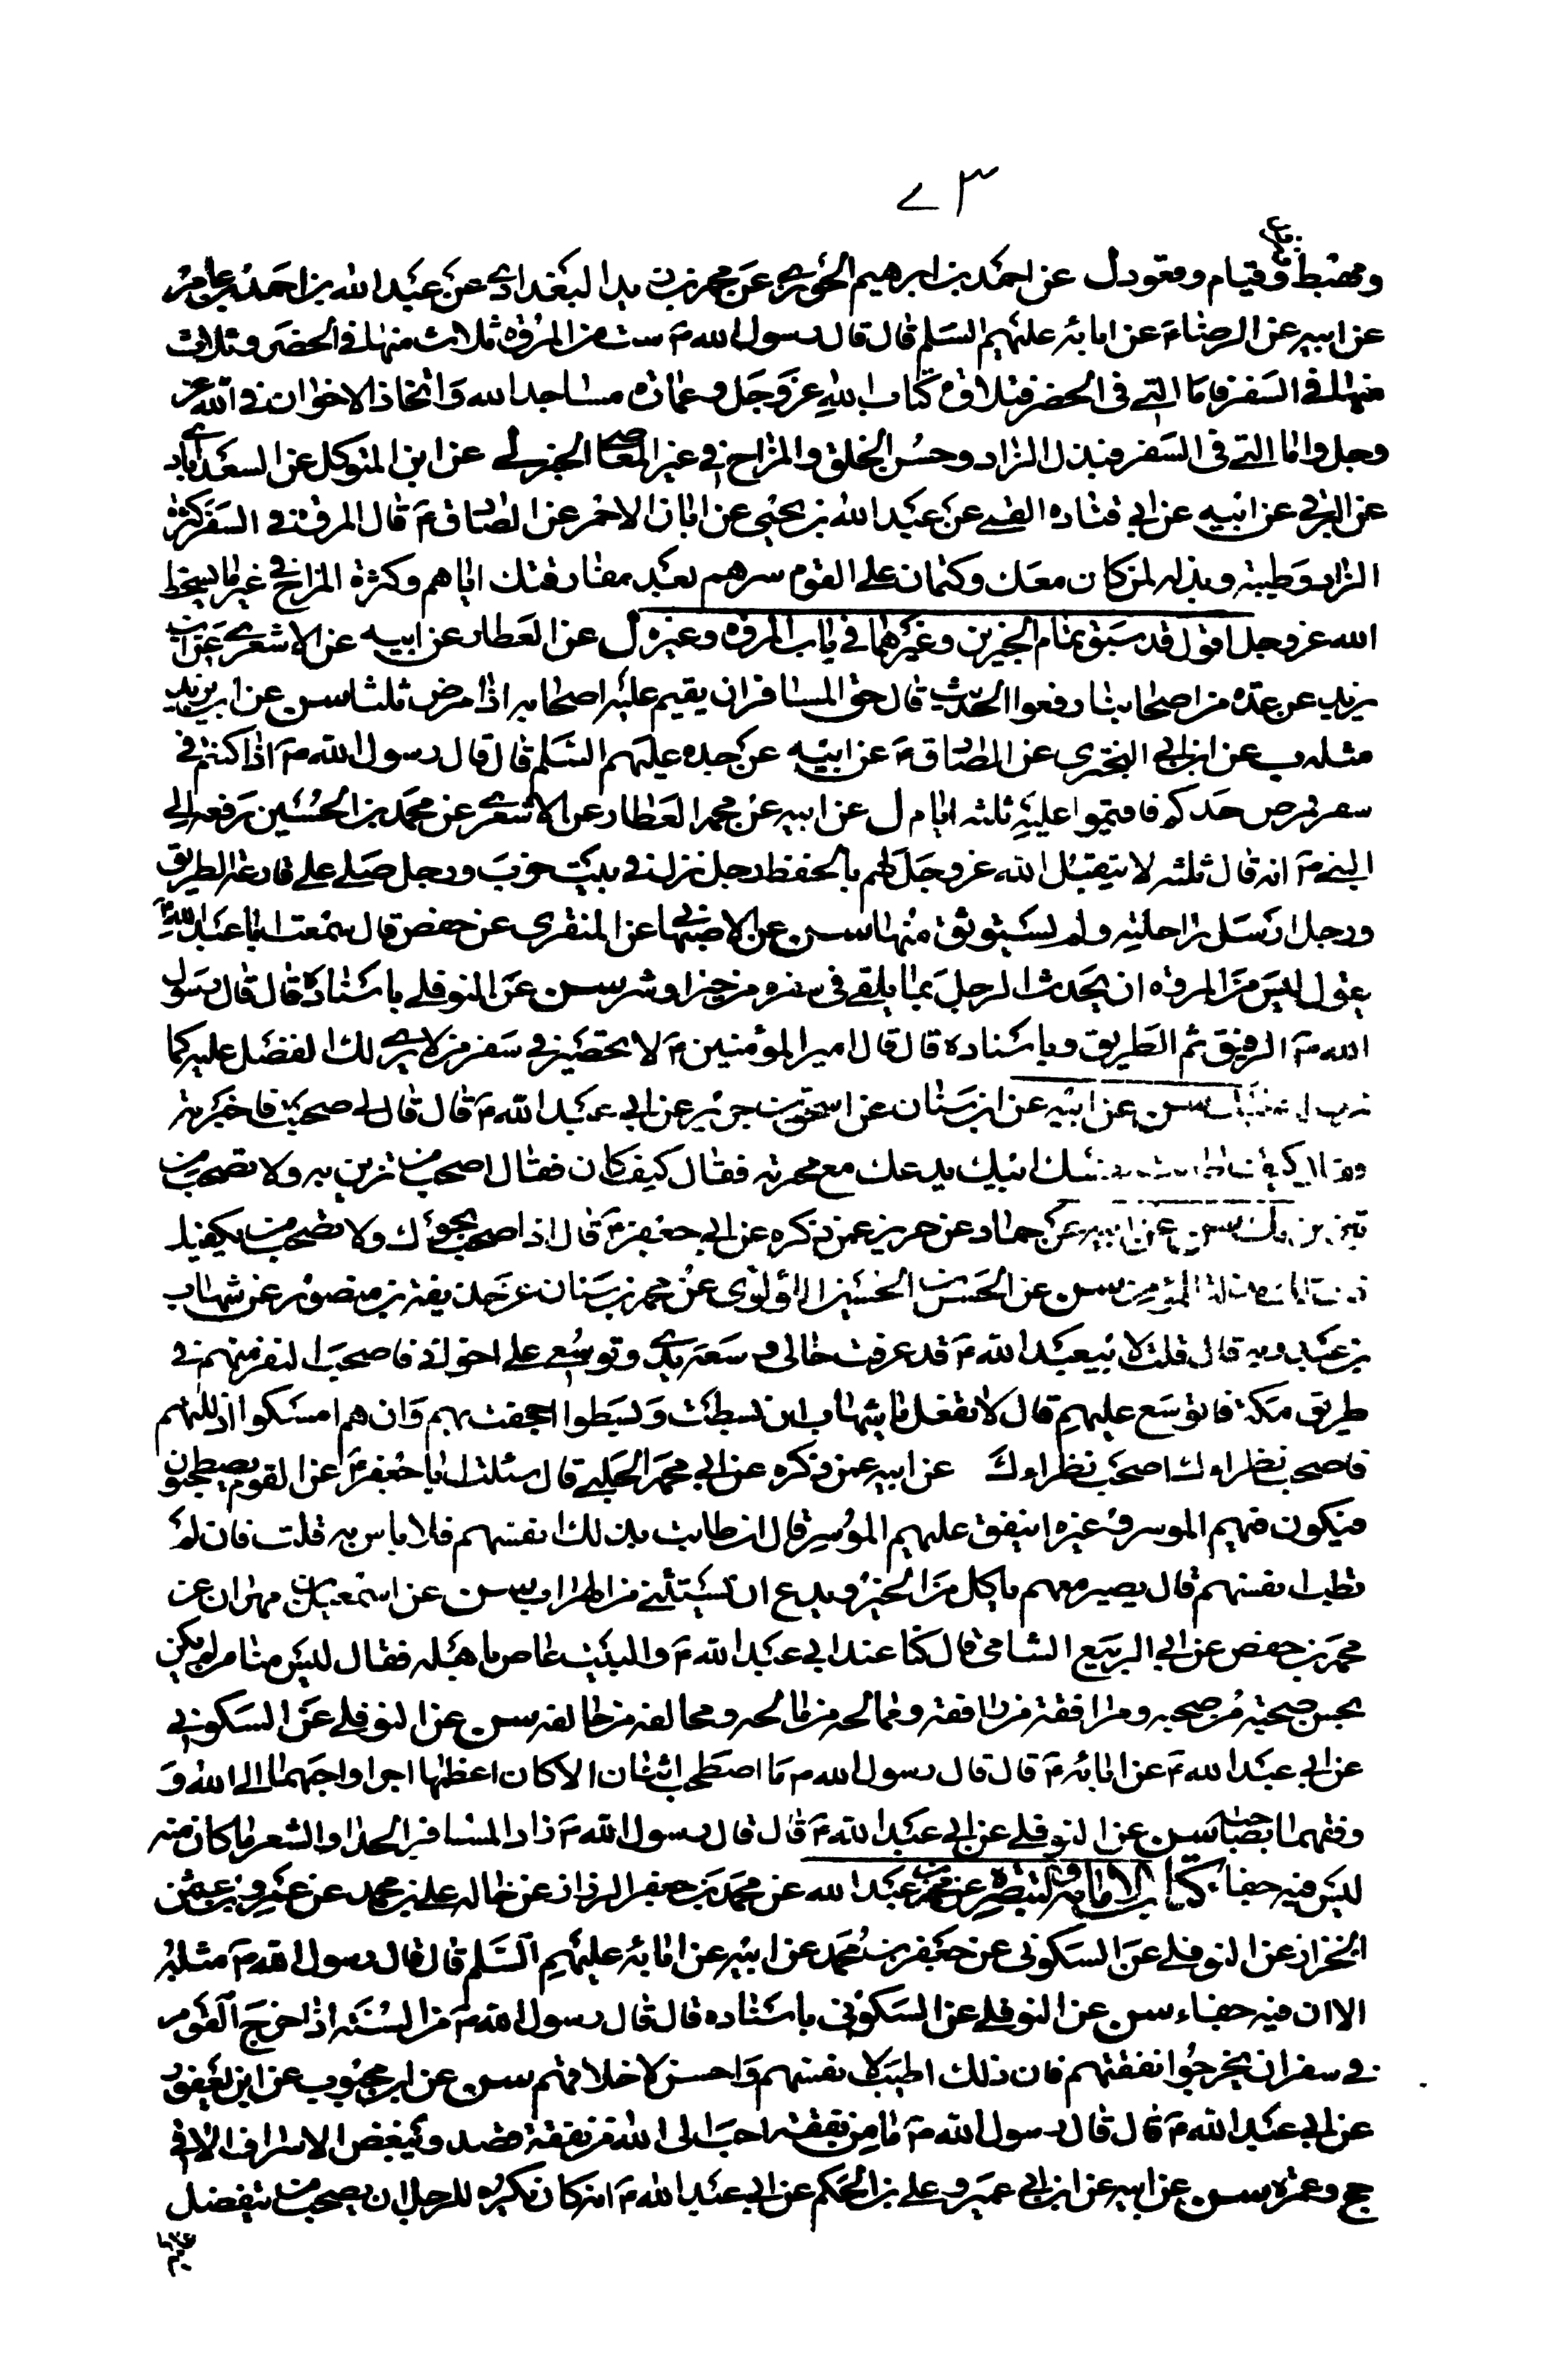 ٧٣
ومضبط وقيام وقعود ل عن احمد بن ابرهيم الخوزي عن محمد بن زيد البغدادي عن عبد الله بن احمد بن عامر
عن ابيه عن الرضا ع عن ابائه عليهم السلم قال قال رسول الله ص ست من المروة ثلاث منها في الحضر وثلاث
منها في السفر فاما التي في الحضر فتلاوة كتاب الله عز وجل وعمارة مساجد الله واتخاذ الاخوان في الله عز
وجل واما التي في السفر فبذل الزاد وحسن الخلق والمزاح في غير المعاصي الخبر لي عن ابن المتوكل عن السعدابادي
عن البرقي عن ابيه عن ابي قتادة القمي عن عبد الله بن يحيى عن ابان الاحمر عن الصادق ع قال المروة في السفر كثرة
الزاد وطيبه وبذله لمن كان معك وكتمان على القوم سرهم بعد مفارقتك اياهم وكثرة المزاح في غير ما يسخط
الله عز وجل اقول قد سبق تمام الخبرين وغيرهما في باب المروة وغيره ل عن العطار عن ابيه عن الاشعري عن ابن
يزيد عن عدة من اصحابنا رفعوا الحديث قال حق المسافر ان يقيم عليه اصحابه اذا مرض ثلثا سن عن ابن يزيد
مثله ب عن ابن ابي البختري عن الصادق ع عن ابيه عن جده عليهم السلم قال قال رسول الله ص اذا كنتم في
سفر فمرض احدكم فاقيموا عليه ثلثه ايام ل عن ابيه عن محمد العطار عن الاشعري عن محمد بن الحسين رفعه الى
النبي ص انه قال ثلثه لا يتقبل الله عز وجل لهم بالحفظ رجل نزل في بيت خرب ورجل صلى على قارعة الطريق
ورجل ارسل راحلته ولم يستوثق منها سن عن الاصبهاني عن المنقري عن حفص قال سمعت ابا عبد الله ع
يقول ليس من المروة ان يحدث الرجل بما يلقى في سفره من خير او شر سن عن النوفلي باسناده قال قال رسول
الله ص الرفيق ثم الطريق وباسناده قال قال امير المؤمنين ع لا تصحبن في سفر من لا يرى لك الفضل عليه كما
سن عن ابيه عن ابن سنان عن اسحق بن جرير عن ابي عبد الله ع قال قال لي من صحبت فاخبرته
ابيك يدعك مع محمد فقال كيف كان فقال اصحب من تتزين به ولا تصحب من
يتزين بك سن عن ابيه عن حماد عن حريز عمن ذكره عن ابي جعفر ع قال اذا صحبت فاصحب نحوك ولا تصحب من يكفيك
سن عن الحسن بن الحسين اللؤلؤى عن محمد بن سنان عن حذيفة بن منصور عن شهاب
بن عبد ربه قال قلت لابي عبد الله ع قد عرفت حالى وسعة يدي وتوسعي على اخواني فاصحب النفر منهم في
طريق مكة فاتوسع عليهم قال لا تفعل يا شهاب ان بسطت وبسطوا اجحفت بهم وان هم امسكوا اذللتهم
فاصحب نظراءك اصحب نظراءك عن ابيه عمن ذكره عن ابي محمد الحلبي قال سئلت ابا جعفر ع عن القوم يصطحبون
فيكون فيهم الموسر وغيره اينفق عليهم الموسر قال ان طابت بذلك انفسهم فلا باس به قلت فان لم
تطب انفسهم قال يصير معهم ياكل من الخبز ويدع ان يستثني من الهرات سن عن اسمعيل بن مهران عن
محمد بن حفص عن ابي الربيع الشامي قال كنا عند ابي عبد الله ع والبيت غاص باهله فقال ليس منا من لم يكن
يحسن صحبة من صحبه ومرافقة من رافقه وممالحه من مالحه ومخالقه من خالقه سن عن النوفلي عن السكوني
عن ابي عبد الله ع عن ابائه ع قال قال رسول الله ص ما اصطحب اثنان الا كان اعظمها اجرا واحبهما الى الله و
وفقهما بصاحبه سن عن النوفلي عن ابي عبد الله ع قال قال رسول الله ص زاد المسافر الحدا والشعر ما كان منه
ليس فيه جفاء كتاب الامامة والتبصرة عن محمد بن عبد الله عن محمد بن جعفر الرزاز عن خاله علي بن محمد عن عمرو بن عثمن
الخزاز عن النوفلي عن السكوني عن جعفر بن محمد عن ابيه عن ابائه عليهم السلم قال قال رسول الله ص مثله
الا ان فيه حفاء سن عن النوفلي عن السكوني باسناده قال قال رسول الله ص من السنة اذا خرج القوم
في سفر ان يخرجوا نفقتهم فان ذلك اطيب لانفسهم واحسن لاخلاقهم سن عن ابن محبوب عن ابن ابي يعفور
عن ابي عبد الله ع قال قال رسول الله ص ما من نفقة احب الى الله من نفقة قصد ويبغض الاسراف الا في
حج وعمرة سن عن ابيه عن ابن ابي عمير وعلي بن الحكم عن ابي عبد الله ع انه كان يكره للرجل ان يصحب من يتفضل
عليه